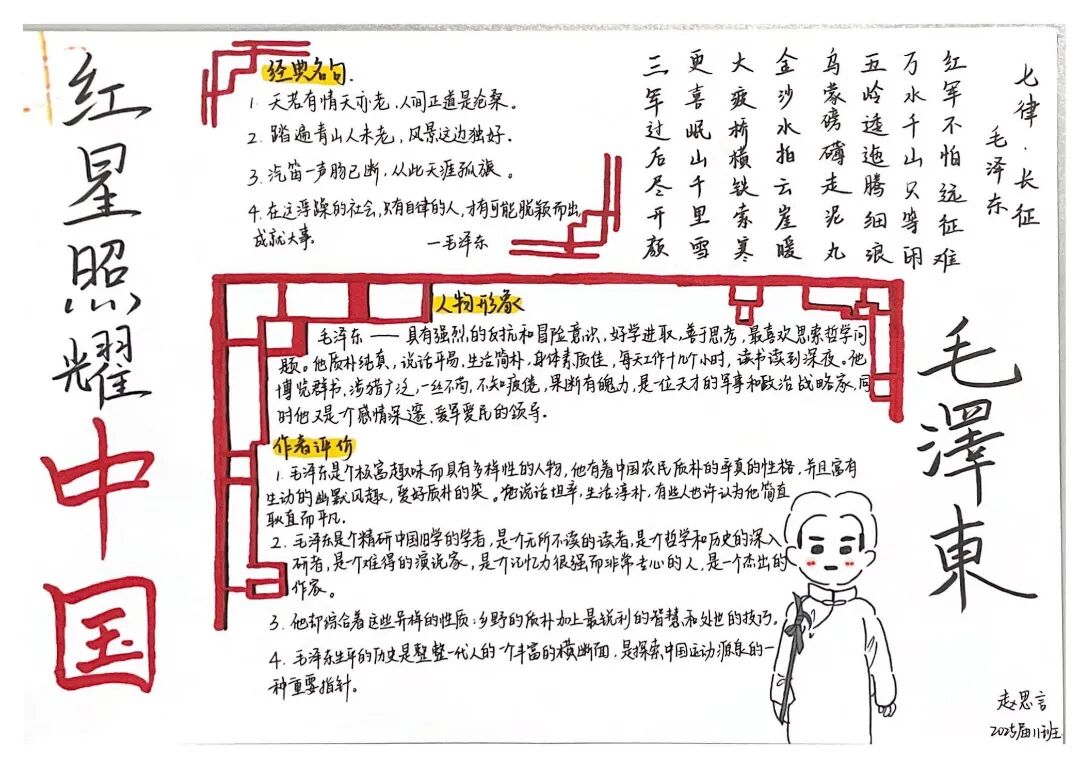 红星照耀中国
经典名句.
1. 天若有情天亦老，人间正道是沧桑。
2. 踏遍青山人未老，风景这边独好。
3. 汽笛一声肠已断，从此天涯孤旅。
4. 在这浮躁的社会，只有自律的人，才有可能脱颖而出，
成就大事。 —毛泽东
七律·长征
毛泽东
红军不怕远征难
万水千山只等闲
五岭逶迤腾细浪
乌蒙磅礴走泥丸
金沙水拍云崖暖
大渡桥横铁索寒
更喜岷山千里雪
三军过后尽开颜
人物形象
毛泽东——具有强烈的反抗和冒险意识，好学进取，善于思考，最喜欢思索哲学问
题。他质朴纯真，说话平易，生活简朴，身体素质佳，每天工作十几个小时，读书读到深夜。他
博览群书，涉猎广泛，一丝不苟，不知疲倦，果断有魄力，是一位天才的军事和政治战略家，同
时他又是个感情深邃，爱军爱民的领导。
作者评价
1. 毛泽东是个极富趣味而具有多样性的人物，他有着中国农民质朴的率真的性格，并且富有
生动的幽默风趣，爱好质朴的笑。他说话坦率，生活淳朴，有些人也许认为他简直
耿直而平凡.
2. 毛泽东是个精研中国旧学的学者，是个无所不读的读者，是个哲学和历史的深入
研者，是个难得的演说家，是个记忆力很强而非常专心的人，是一个杰出的
作家。
3. 他却综合着这些异样的性质：乡野的质朴加上最锐利的智慧和处世的技巧。
4. 毛泽东生平的历史是整整一代人的一个丰富的横断面，是探索中国运动源泉的一
种重要指针。
毛澤東
赵思言
2025届11班